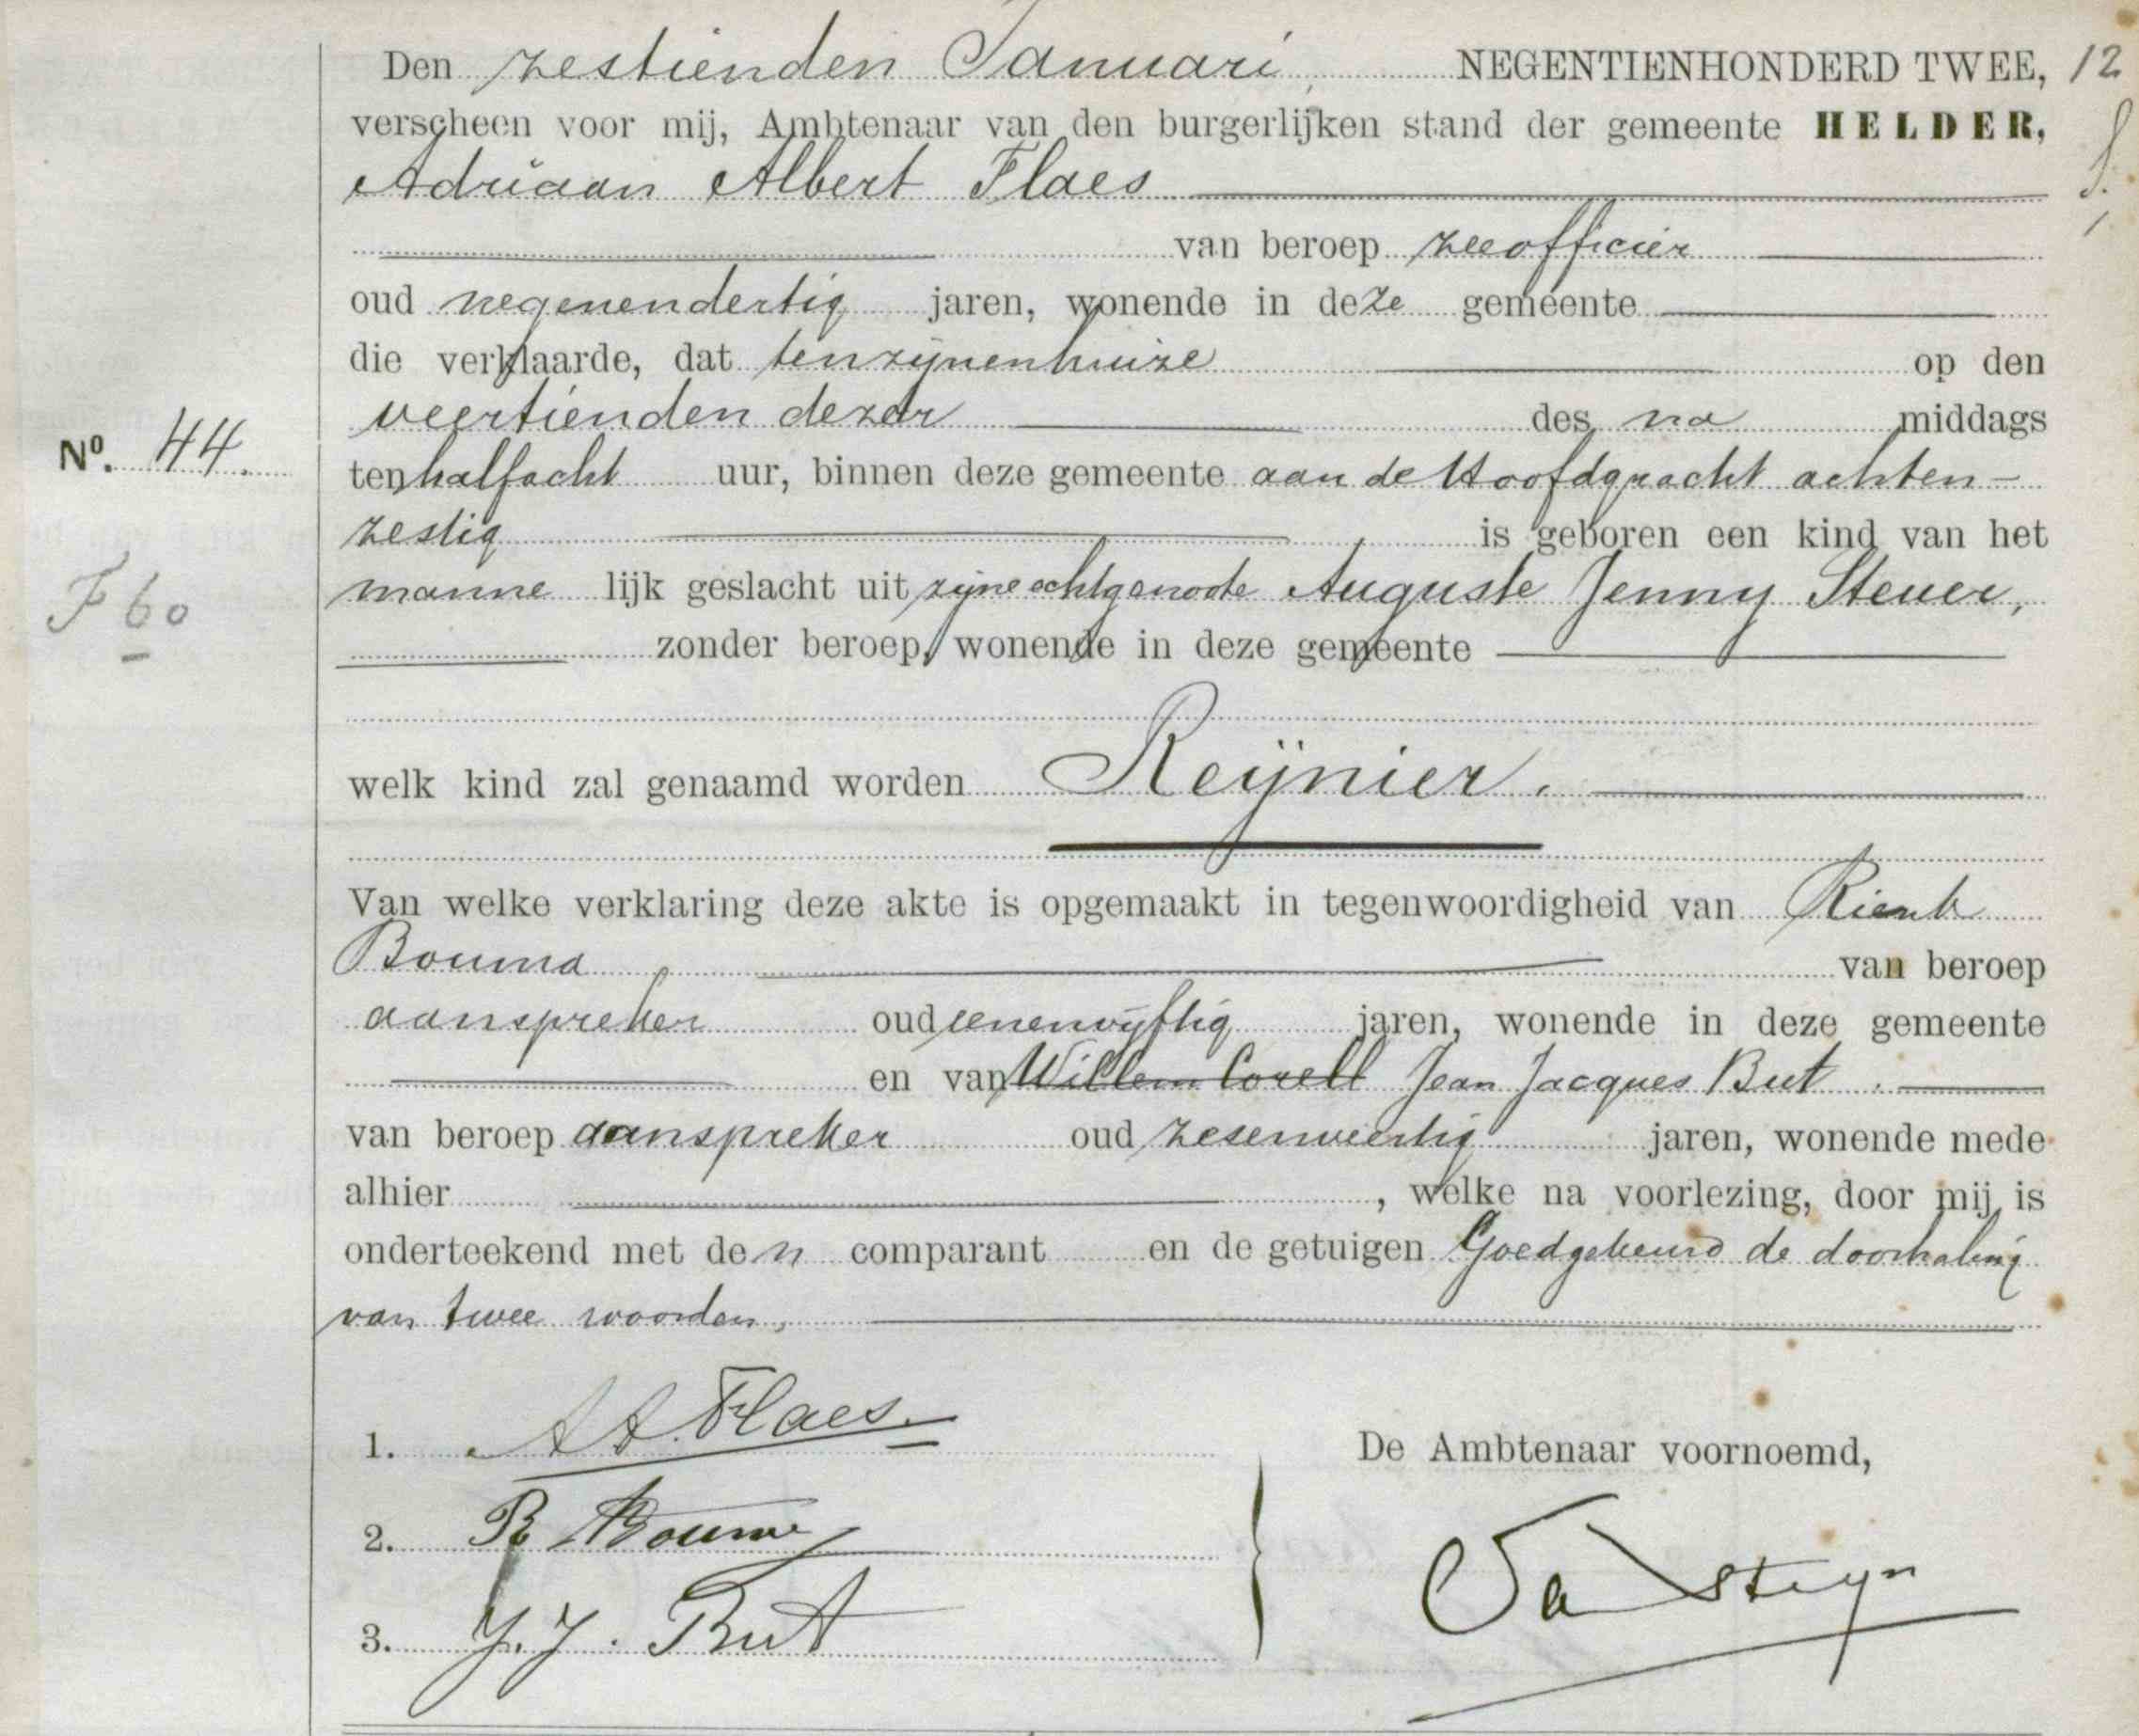 Den zestienden Januari NEGENTIENHONDERD TWEE, 12
verscheen voor mij, Ambtenaar van den burgerlijken stand der gemeente HELDER,
Adriaan Albert Flaes
van beroep zeeofficier
oud negenendertig jaren, wonende in deze gemeente
die verklaarde, dat tenzijnenhuize op den
veertienden dezer des na middags
ten halfacht uur, binnen deze gemeente aan de Hoofdgracht achten-
No. 44.
zestig is geboren een kind van het
manne lijk geslacht uit zijne echtgenoote Auguste Jenny Steuer,
F 60
zonder beroep, wonende in deze gemeente
welk kind zal genaamd worden Reijnier.
Van welke verklaring deze akte is opgemaakt in tegenwoordigheid van Rienk
Bouma van beroep
aanspreker oud eenenvijftig jaren, wonende in deze gemeente
en van Willem Corell Jean Jacques But
van beroep aanspreker oud zesenveertig jaren, wonende mede
alhier, welke na voorlezing, door mij is
onderteekend met den comparant en de getuigen Goedgekeurd de doorhaling
van twee woorden.
1. A A. Flaes.
De Ambtenaar voornoemd,
2. R Bouma
3. J. J. But